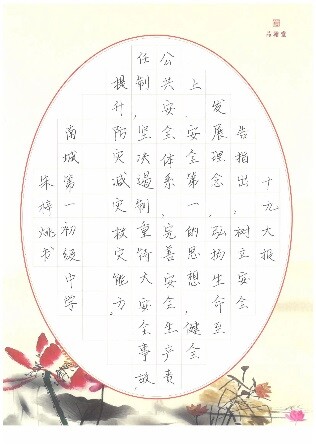 十九大报
告指出，树立安全
发展理念，弘扬生命至
上、安全第一，的思想，健全
公共安全体系，完善安全生产责
任制，坚决遏制重特大安全事故，
提升防灾减灾救灾能力。
南城第一初级中学
朱梓 书